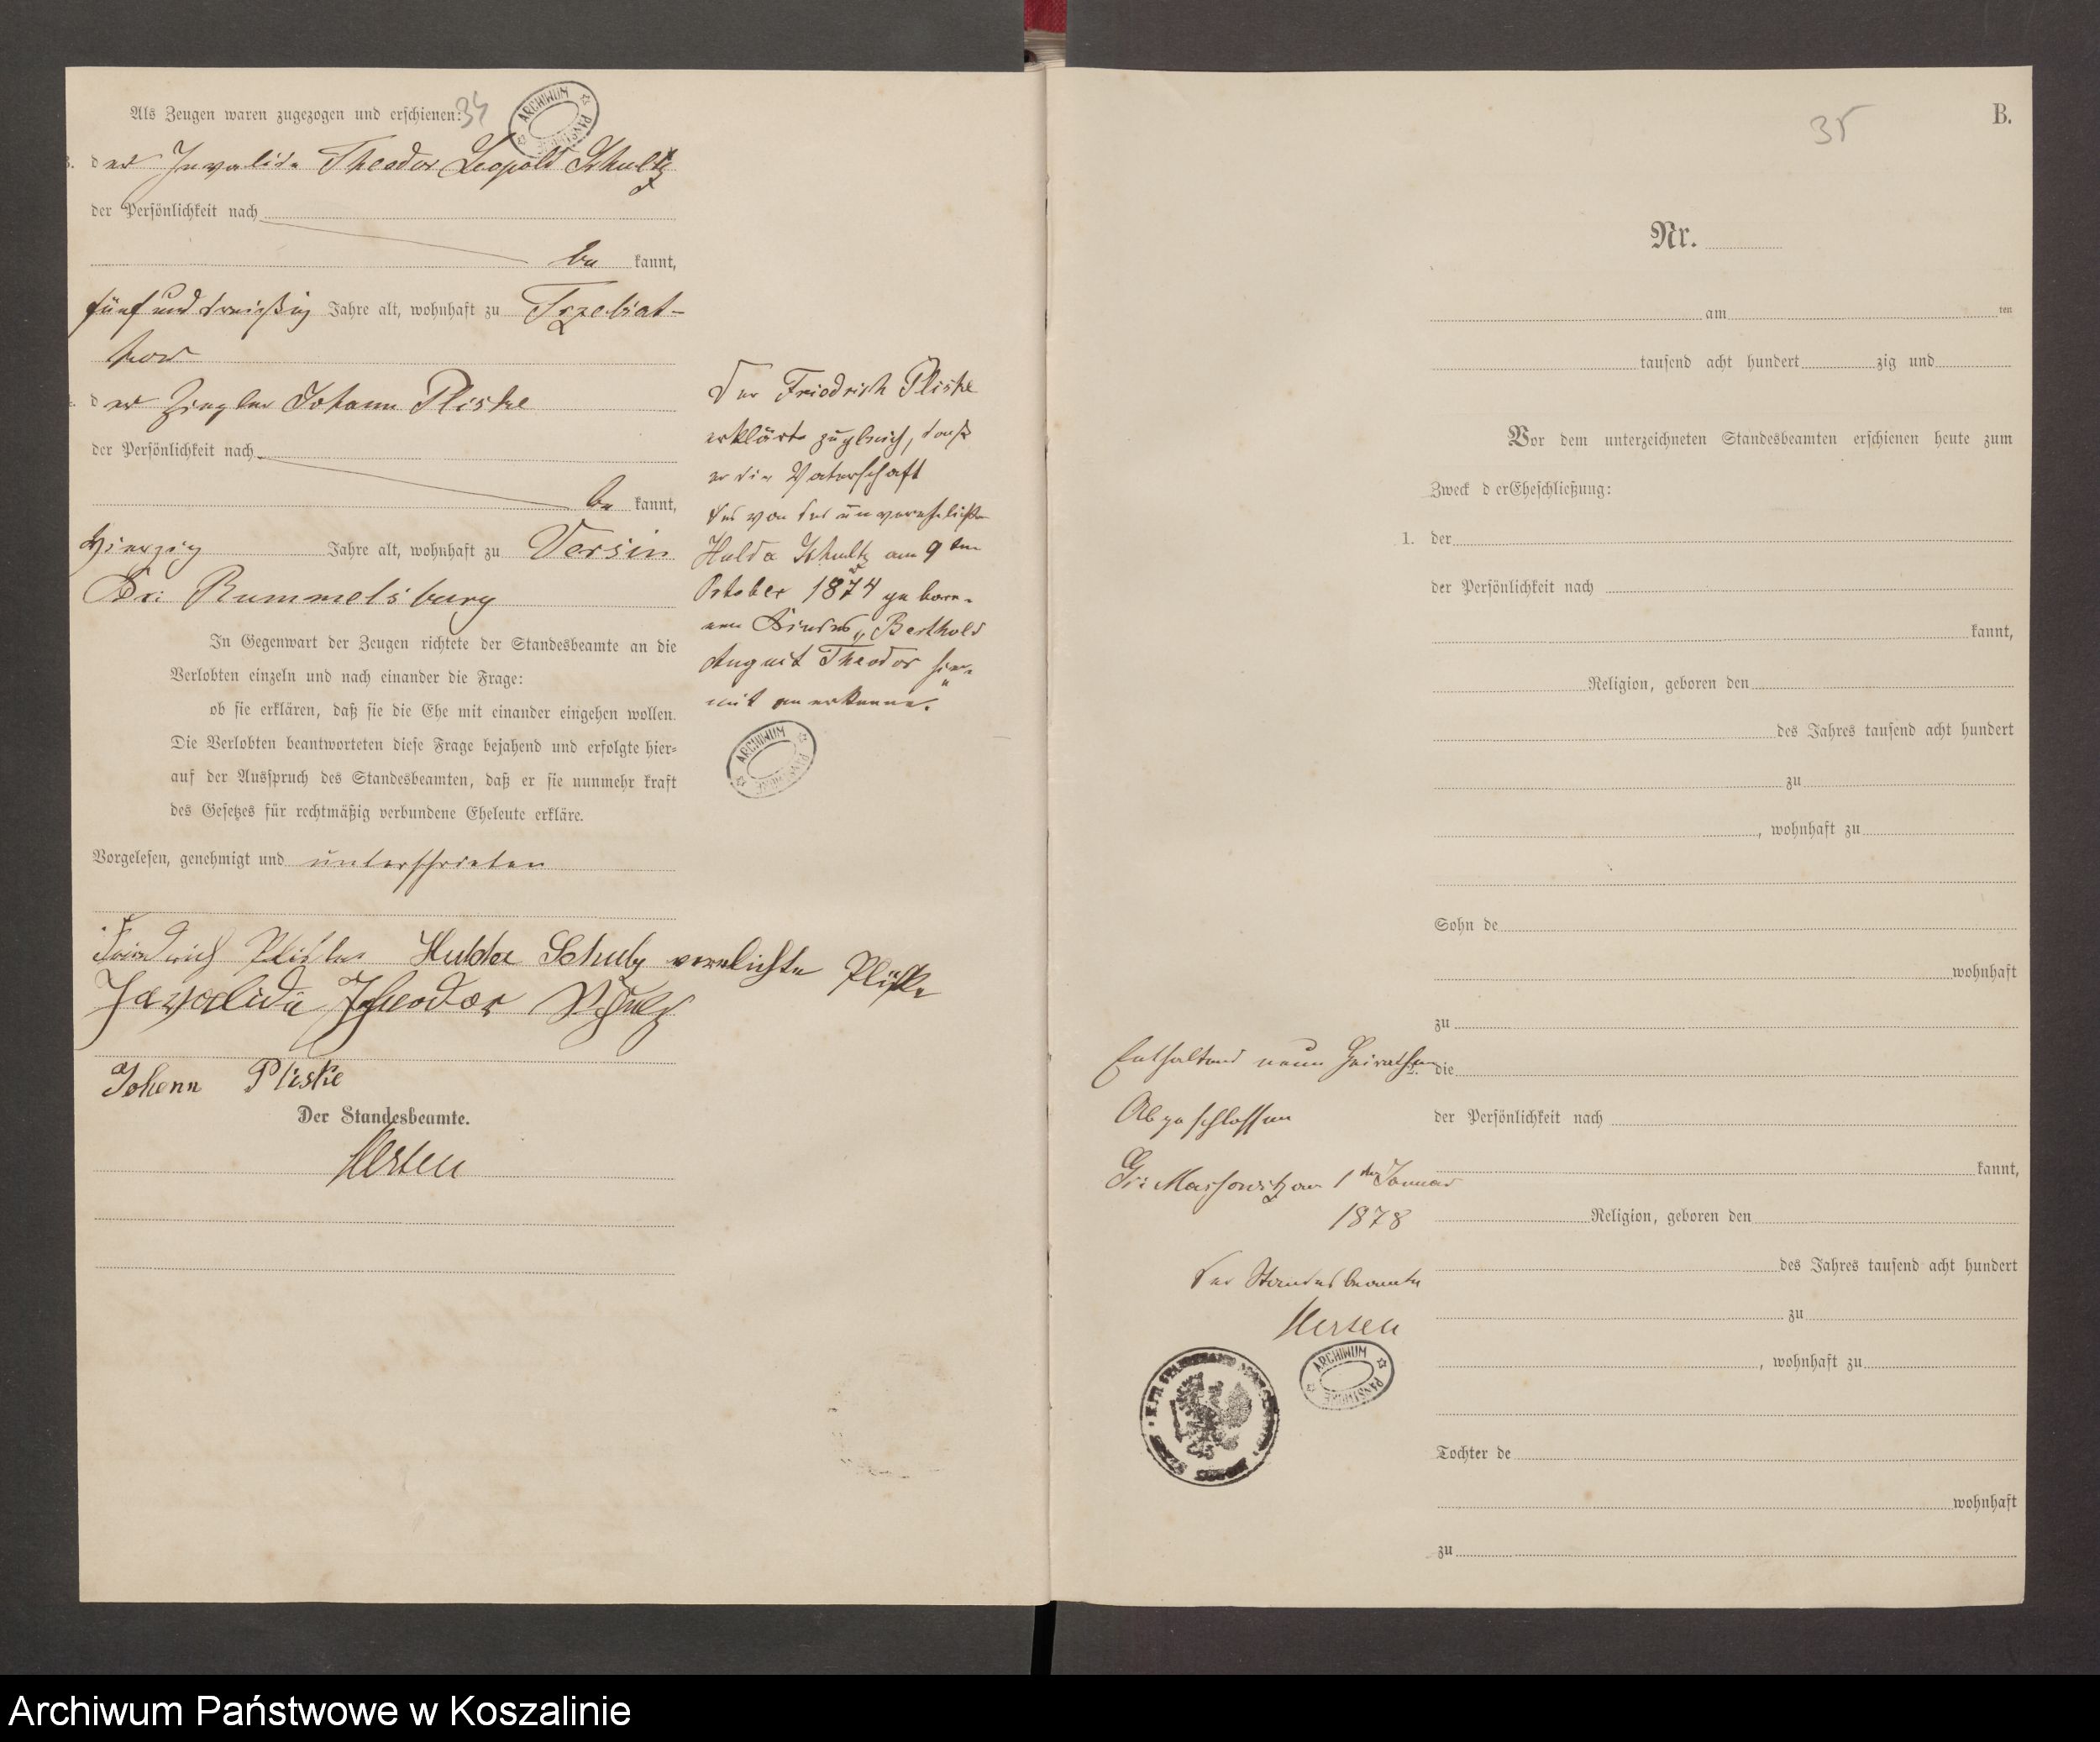 Als Zeugen waren zugezogen und erschienen:
34
ARCHIWUM PAŃSTWOWE
3. der Invalide Theodor Leopold Schultz
der Persönlichkeit nach
be kannt,
fünf und dreißig Jahre alt, wohnhaft zu Trzebiat-
kow
4. der Ziegler Johann Pliske
der Persönlichkeit nach
be kannt,
vierzig Jahre alt, wohnhaft zu Versin
Kr: Rummelsburg
In Gegenwart der Zeugen richtete der Standesbeamte an die
Verlobten einzeln und nach einander die Frage:
ob sie erklären, daß sie die Ehe mit einander eingehen wollen.
Die Verlobten beantworteten diese Frage bejahend und erfolgte hier-
auf der Ausspruch des Standesbeamten, daß er sie nunmehr kraft
des Gesetzes für rechtmäßig verbundene Eheleute erkläre.
Vorgelesen, genehmigt und unterschrieben
Friedrich Pliske Hulda Schulz verelichte Plißke
Invalide Theodor Schulz
Johann Pliske
Der Standesbeamte.
Der Friedrich Pliske
erklärte zugleich, daß
er die Vaterschaft
des von der unverehelichten
Hulda Schultz am 9ten
October 1874 gebore-
nen Kindes „Berthold
August Theodor hier-
mit anerkenne."
ARCHIWUM PAŃSTWOWE
35
B.
Nr.
am ten
tausend acht hundert zig und
Vor dem unterzeichneten Standesbeamten erschienen heute zum
Zweck d erEheschließung:
1. der
der Persönlichkeit nach
kannt,
Religion, geboren den
des Jahres tausend acht hundert
zu
, wohnhaft zu
Sohn de
wohnhaft
zu
2. die
der Persönlichkeit nach
kannt,
Religion, geboren den
des Jahres tausend acht hundert
zu
, wohnhaft zu
Tochter de
wohnhaft
zu
Enthaltend neun Heirathen
Abgeschlossen
Gr: Massowitz am 1ten Januar
1878
Der Standesbeamte
ARCHIWUM PAŃSTWOWE
Archiwum Państwowe w Koszalinie